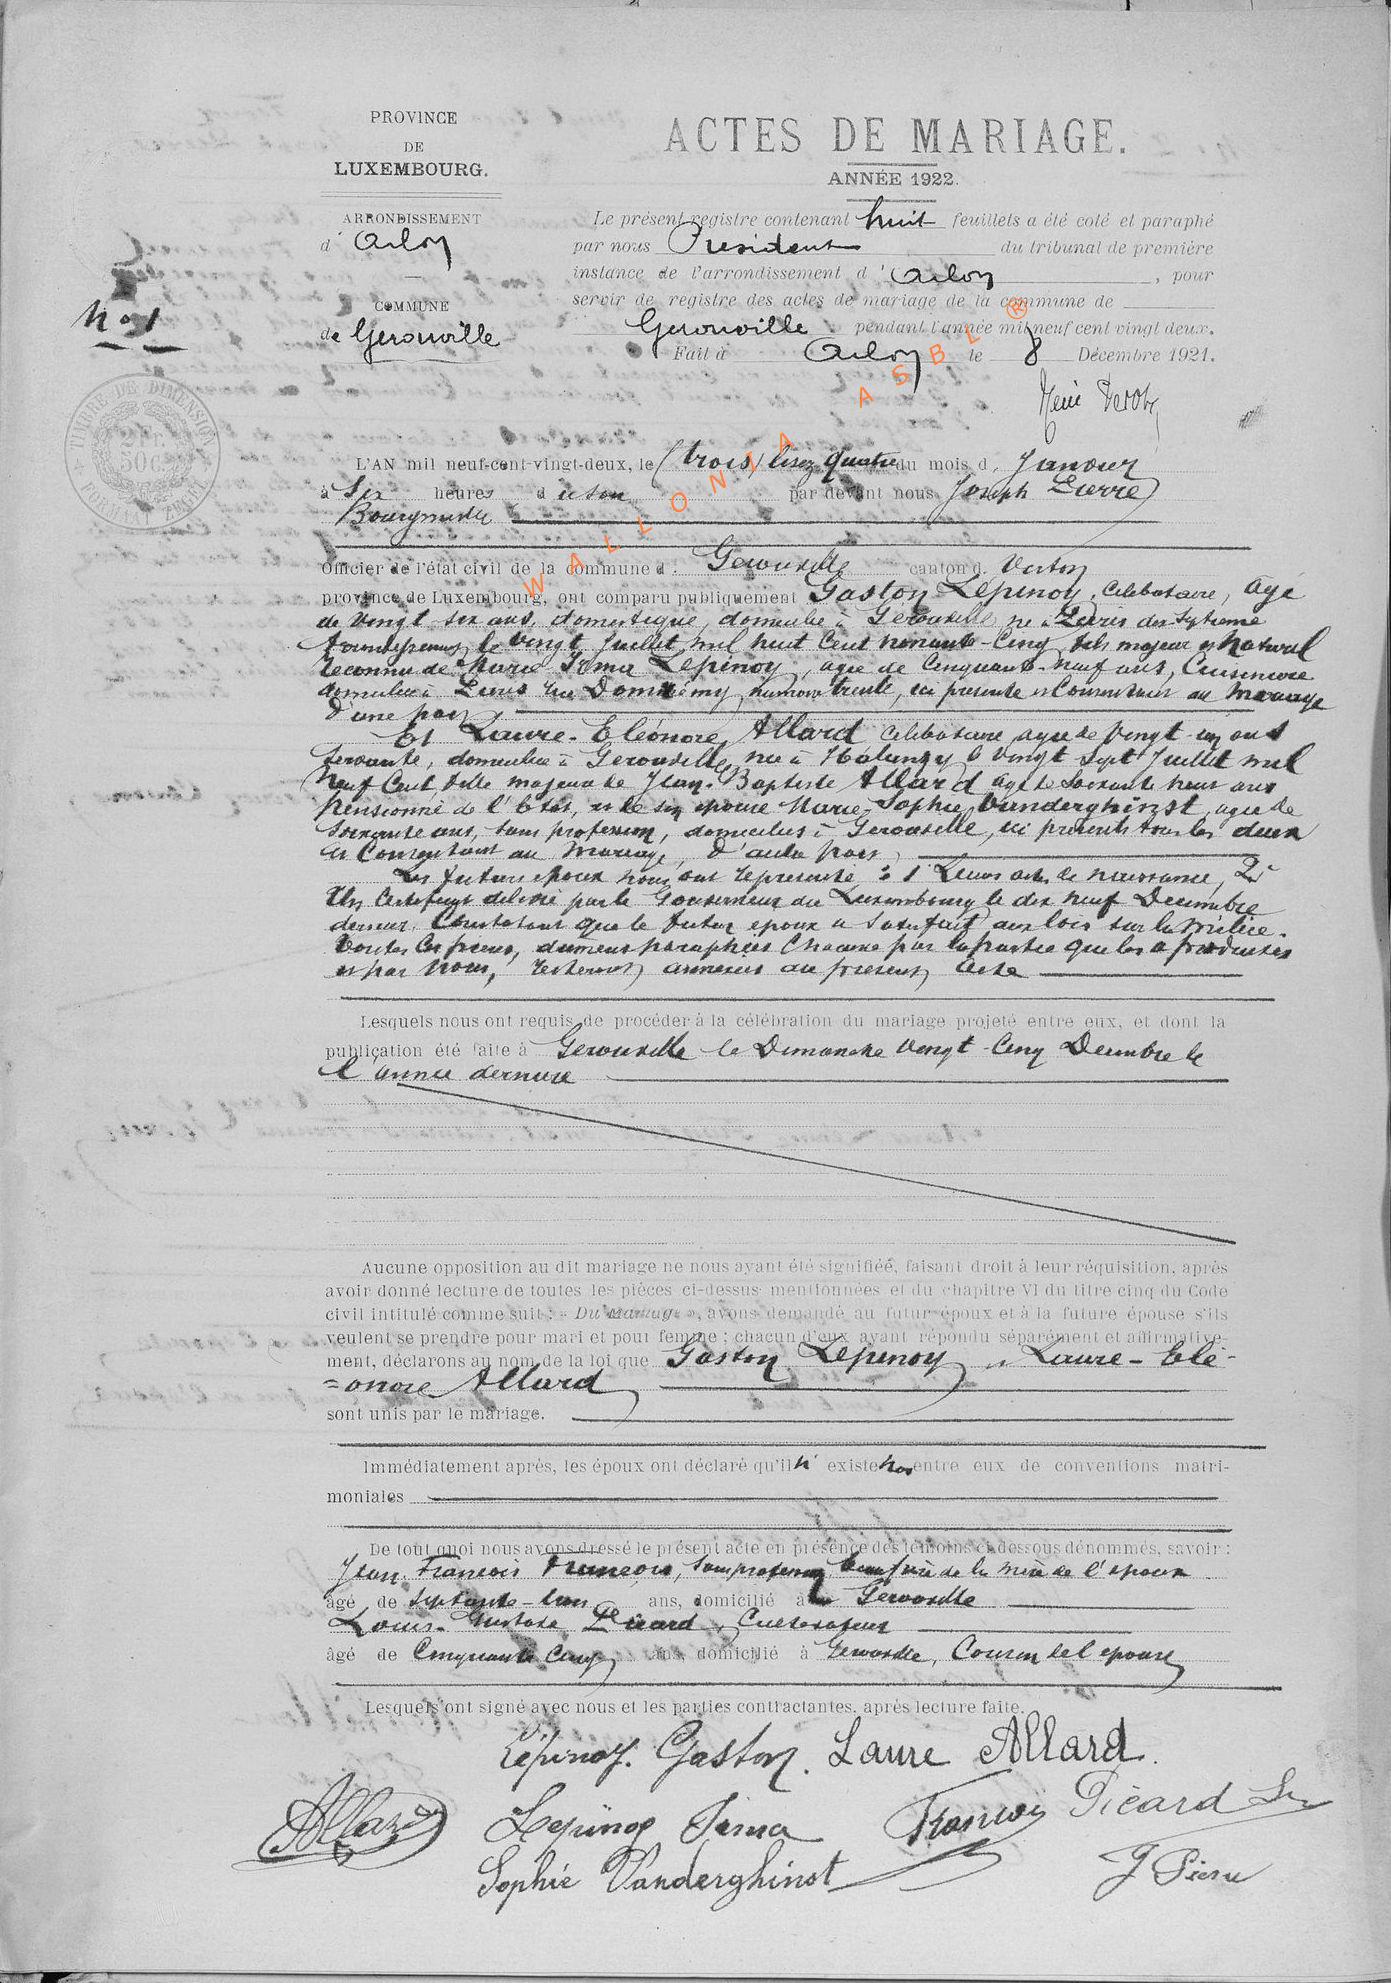 PROVINCE
DE
LUXEMBOURG.
ARRONDISSEMENT
d' Arlon
COMMUNE
de Gerouville
N° 1
TIMBRE DE DIMENSION
2 Fr.
50 C.
ACTES DE MARIAGE.
ANNÉE 1922.
Le présent registre contenant huit feuillets a été coté et paraphé
par nous Président du tribunal de première
instance de l'arrondissement d' Arlon, pour
servir de registre des actes de mariage de la commune de
Gerouville pendant l'année mil neuf cent vingt deux.
Fait à Arlon le 8 Décembre 1921.
WALLONIA ASBL ®
L'AN mil neuf-cent-vingt-deux, le (trois) lisez quatre du mois d. Janvier
à Six heures d u soir par devant nous Joseph Pierre
Bourgmestre
Officier de l'état civil de la commune d. Gerouville canton d. Virton
province de Luxembourg, ont comparu publiquement Gaston Lépinoy, Célibataire, âgé
de vingt six ans, domestique, domicilié à Gerouville, né à Paris dix septième
arrondissement, le vingt Juillet mil huit cent nonante-cinq, fils majeur et naturel
reconnu de Marie Irma Lépinoy, agée de Cinquante-neuf ans, Cuisinière
domiciliée à Paris rue Domrémy, numéro trente, ici présente et Consentant au mariage
d'une part,
Et Laure-Eléonore Allard Célibataire, agée de Vingt-un ans
Servante, domiciliée à Gerouville, née à Halanzy le vingt sept Juillet mil
neuf Cent fille majeure de Jean-Baptiste Allard agé de Soixante neuf ans
Pensionné de l'Etat, et de son épouse Marie-Sophie Vanderghinst, agée de
Soixante ans, sans profession, domiciliés à Gerouville, ici présents tous les deux
et Consentant au Mariage, d'autre part,
Les futurs époux nous ont représenté : 1° Leurs actes de naissance, 2°
Un Certificat délivré par le Gouverneur du Luxembourg le dix neuf Décembre
dernier, Constatant que le futur époux a satisfait aux lois sur la Milice.
Toutes les pièces, dument paraphées Chacune par la partie que les a produites
et par Nous, resteront annexées au présent Acte
Lesquels nous ont requis de procéder à la célébration du mariage projeté entre eux, et dont la
publication été faite à Gerouville le Dimanche Vingt-Cinq Décembre de
l'année dernière
Aucune opposition au dit mariage ne nous ayant été signifiée, faisant droit à leur réquisition, après
avoir donné lecture de toutes les pièces ci-dessus mentionnées et du chapitre VI du titre cinq du Code
civil intitulé comme suit : « Du Mariage », avons demandé au futur époux et à la future épouse s'ils
veulent se prendre pour mari et pour femme ; chacun d'eux ayant répondu séparément et affirmative-
ment, déclarons au nom de la loi que Gaston Lépinoy et Laure-Elé-
=onore Allard
sont unis par le mariage.
Immédiatement après, les époux ont déclaré qu'il n' existe pas entre eux de conventions matri-
moniales
De tout quoi nous avons dressé le présent acte en présence des témoins ci-dessous dénommés, savoir :
Jean-François François, Sans profession, beau frère de la mère de l'époux
âgé de Septante-trois ans, domicilié à Gerouville
Louis-Gustave Picard, Cultivateur
âgé de Cinquante Cinq ans, domicilié à Gerouville, Cousin de l'épouse
Lesquels ont signé avec nous et les parties contractantes, après lecture faite.
Lépinoy. Gaston. Laure Allard.
Allard Lepinoy Irma François Picard Ls
Sophie Vanderghinst J Pierre